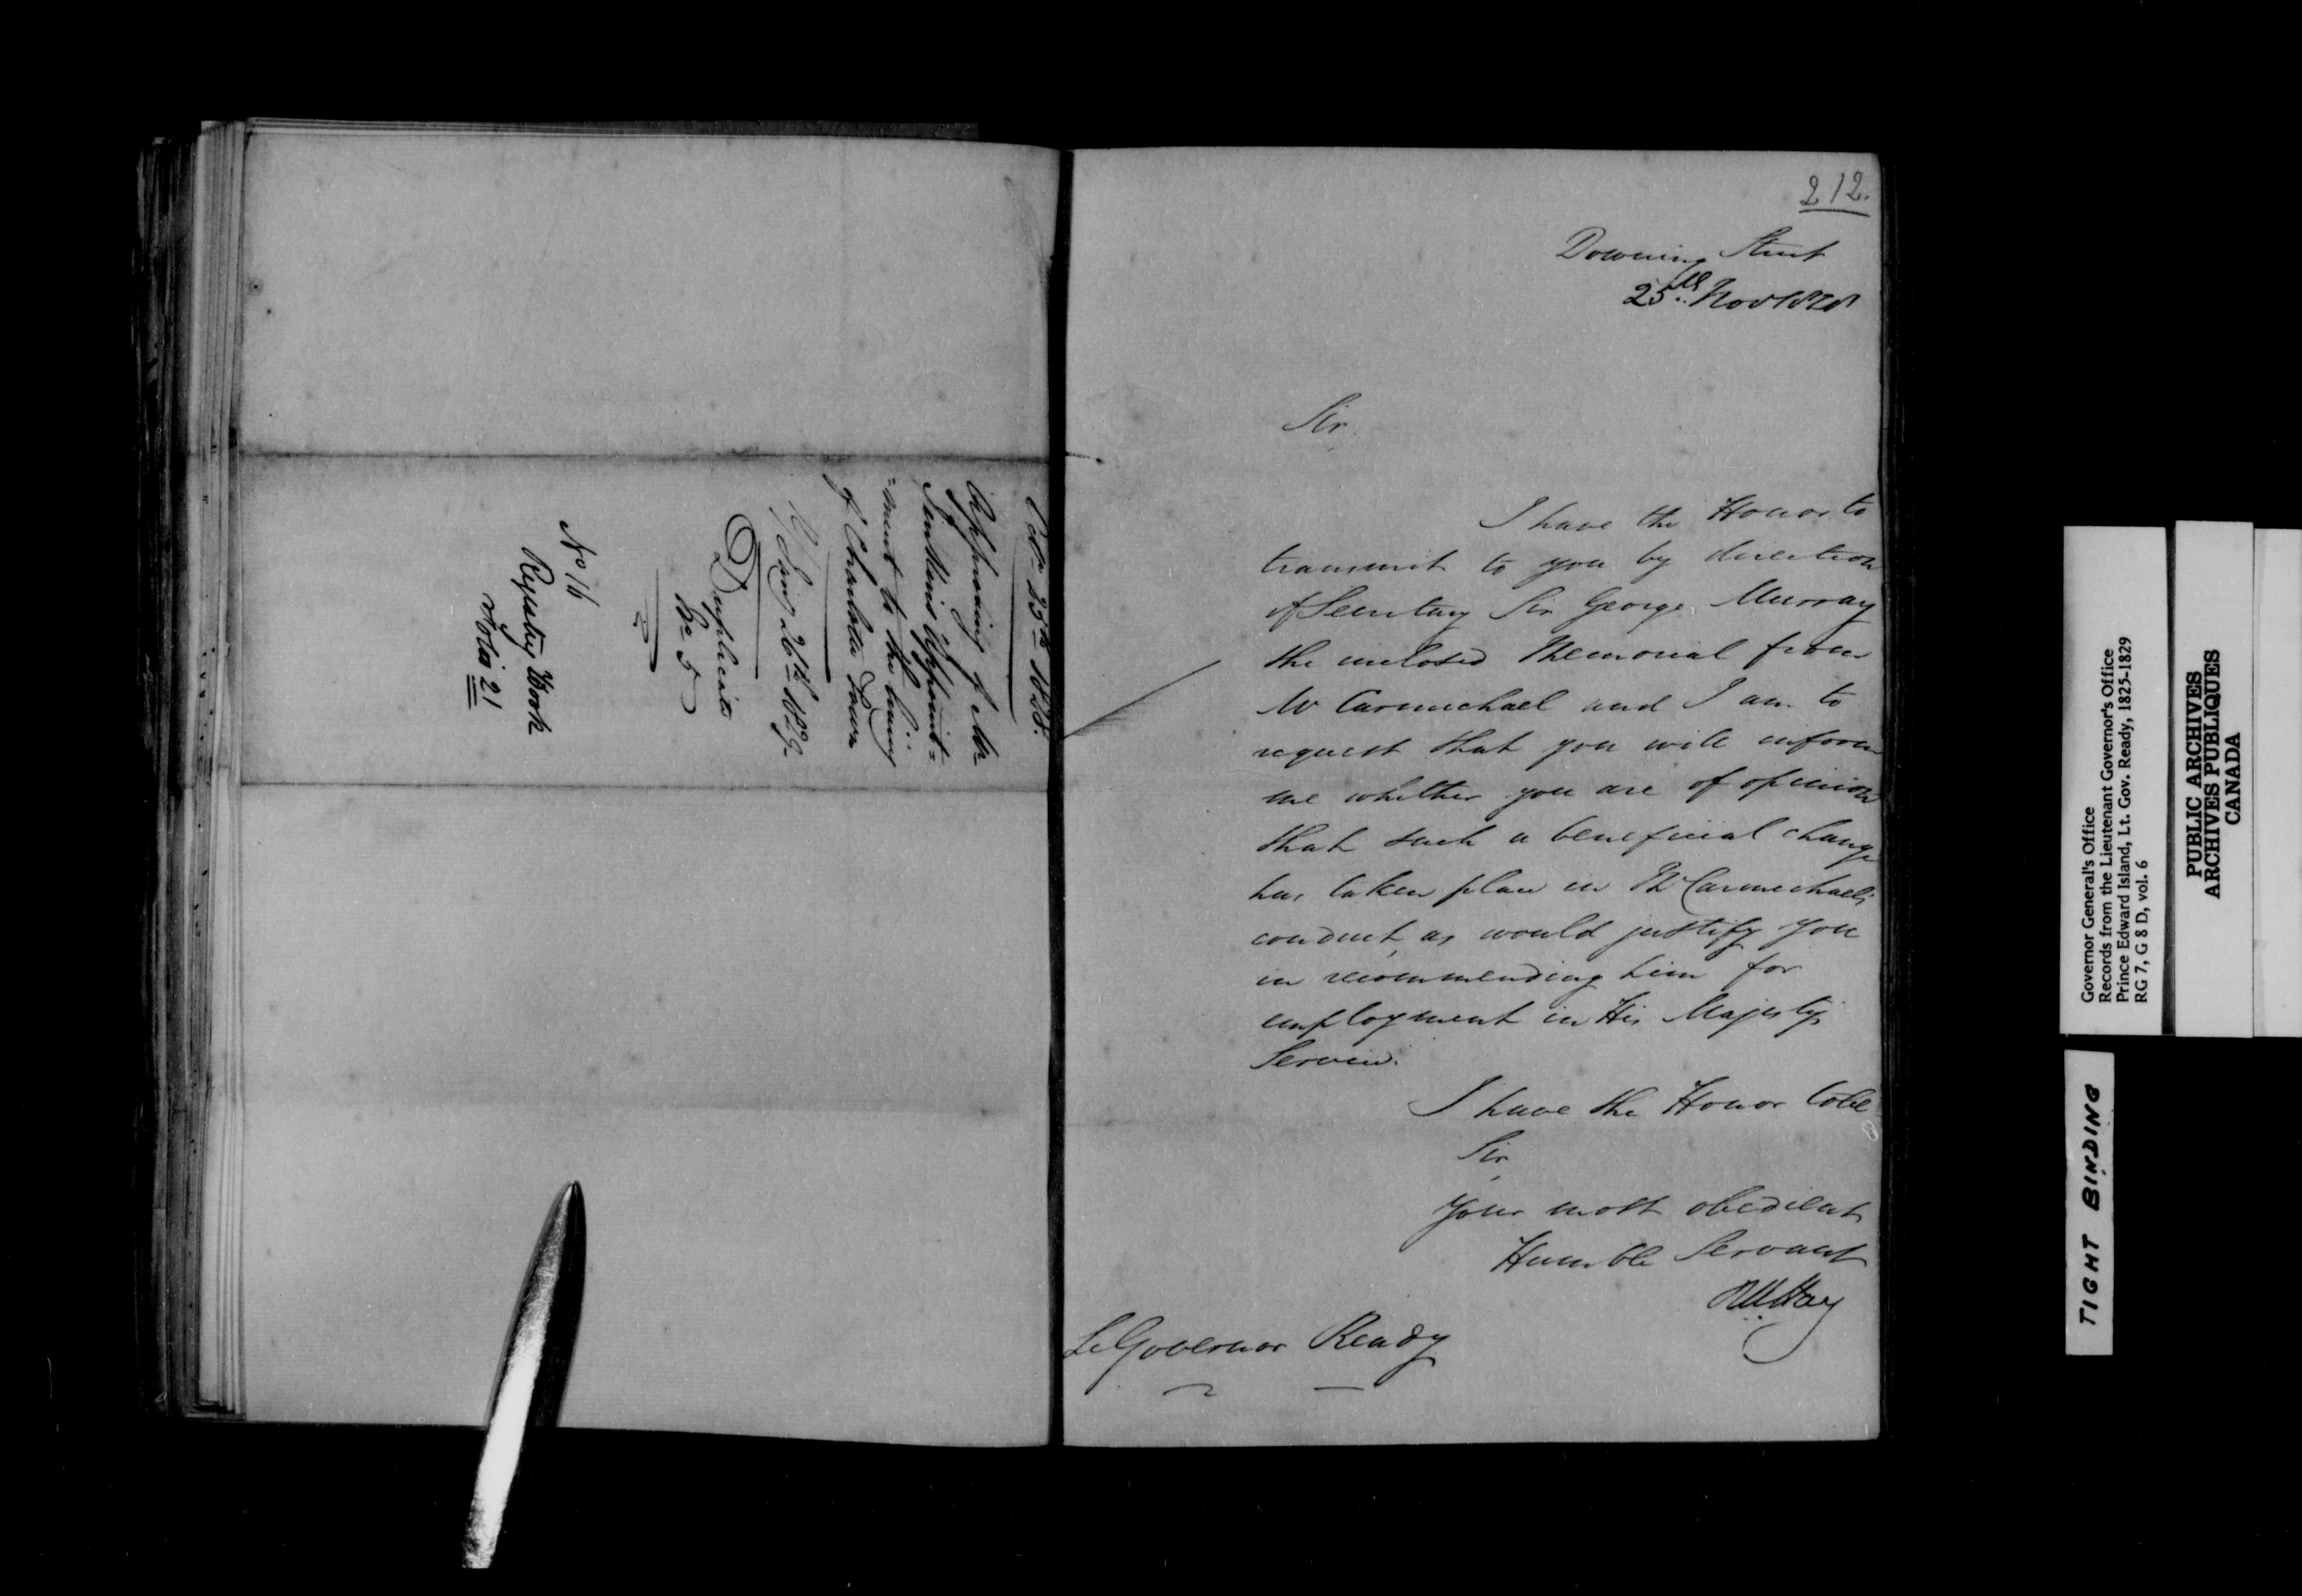 Octr 25th 1828.
Approving of Mr
Jenkins's Appoint=
=ment to the living
of Charlotte Town
26th 1829
Duplicate
No 5
No 16
Registry Book
Folio 21
212.
Downing Street
25th Nov 1828
Sir
I have the Honor to
transmit to you by direction
of Secretary Sir George Murray
the inclosed Memorial from
Mr Carmichael and I am to
request that you will inform
me whether you are of opinion
that such a beneficial change
has taken place in Mr Carmichael's
conduct, as would justify you
in recommending him for
employment in His Majesty's
Service.
I have the Honor to be
Sir,
Your most obedient
Humble Servant
RW Hay
Lt Governor Ready
Governor General's Office
Records from the Lieutenant Governor's Office
Prince Edward Island, Lt. Gov. Ready, 1825-1829
RG 7, G 8 D, vol. 6
PUBLIC ARCHIVES
ARCHIVES PUBLIQUES
CANADA
TIGHT BINDING